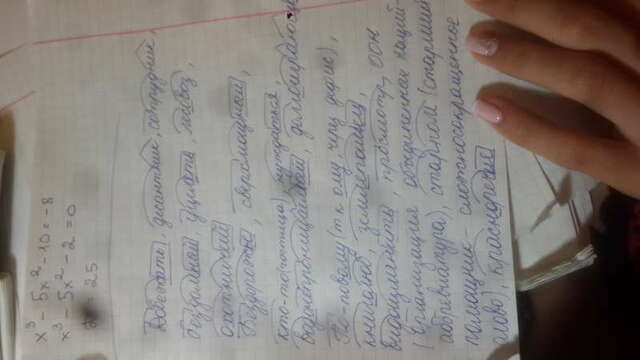 x³ - 5x² - 10 = -8
x³ - 5x² - 2 = 0
25
Довезать, десантник, сотрудник,
бездомный, уцелеть, лесовоз,
охотничий
Бездорожье, сверхмощный,
кто-то (частица), нуждаться,
водонепроницаемый,
По-новому (т к ому, через дефис),
книголюб, землепашец,
видоизменить, просмотр, ООН
(Организация объединенных наций-
аббревиатура), старпом (старший
помощник - сложносокращенное
слово), красноречие